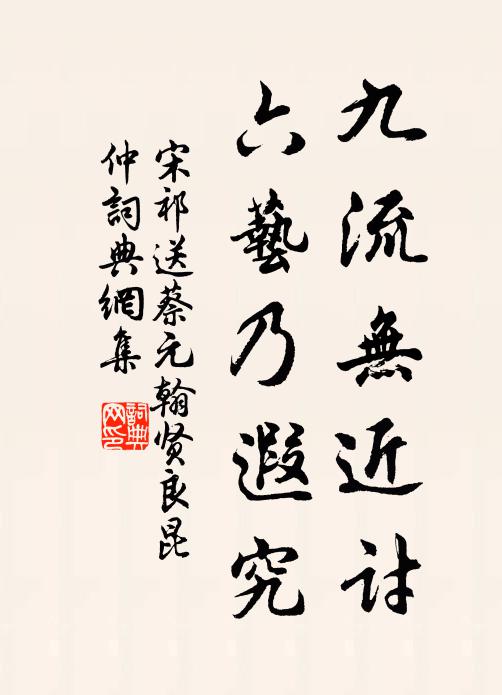 九流無近討
六藝乃遐究
宋祁送蔡元翰贤良昆
仲詞典網集
詞典
网印